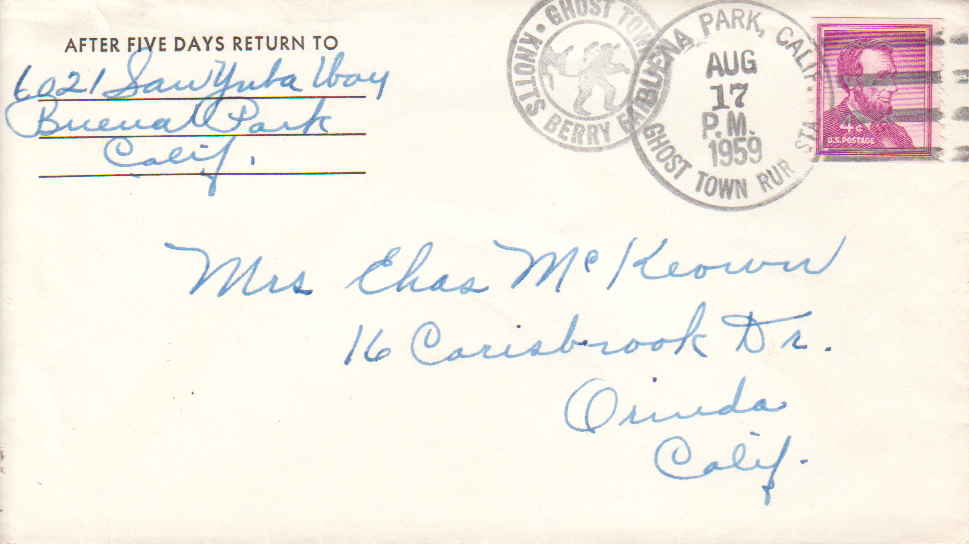 AFTER FIVE DAYS RETURN TO
6021 San Yuba Way
Buena Park
Calif.
KNOTTS BERRY GHOST TOWN
BUENA PARK, CALIF.
AUG
17
P.M.
1959
GHOST TOWN RUR STA
4¢
U.S. POSTAGE
Mrs Chas McKeown
16 Carisbrook Dr.
Orinda
Calif.